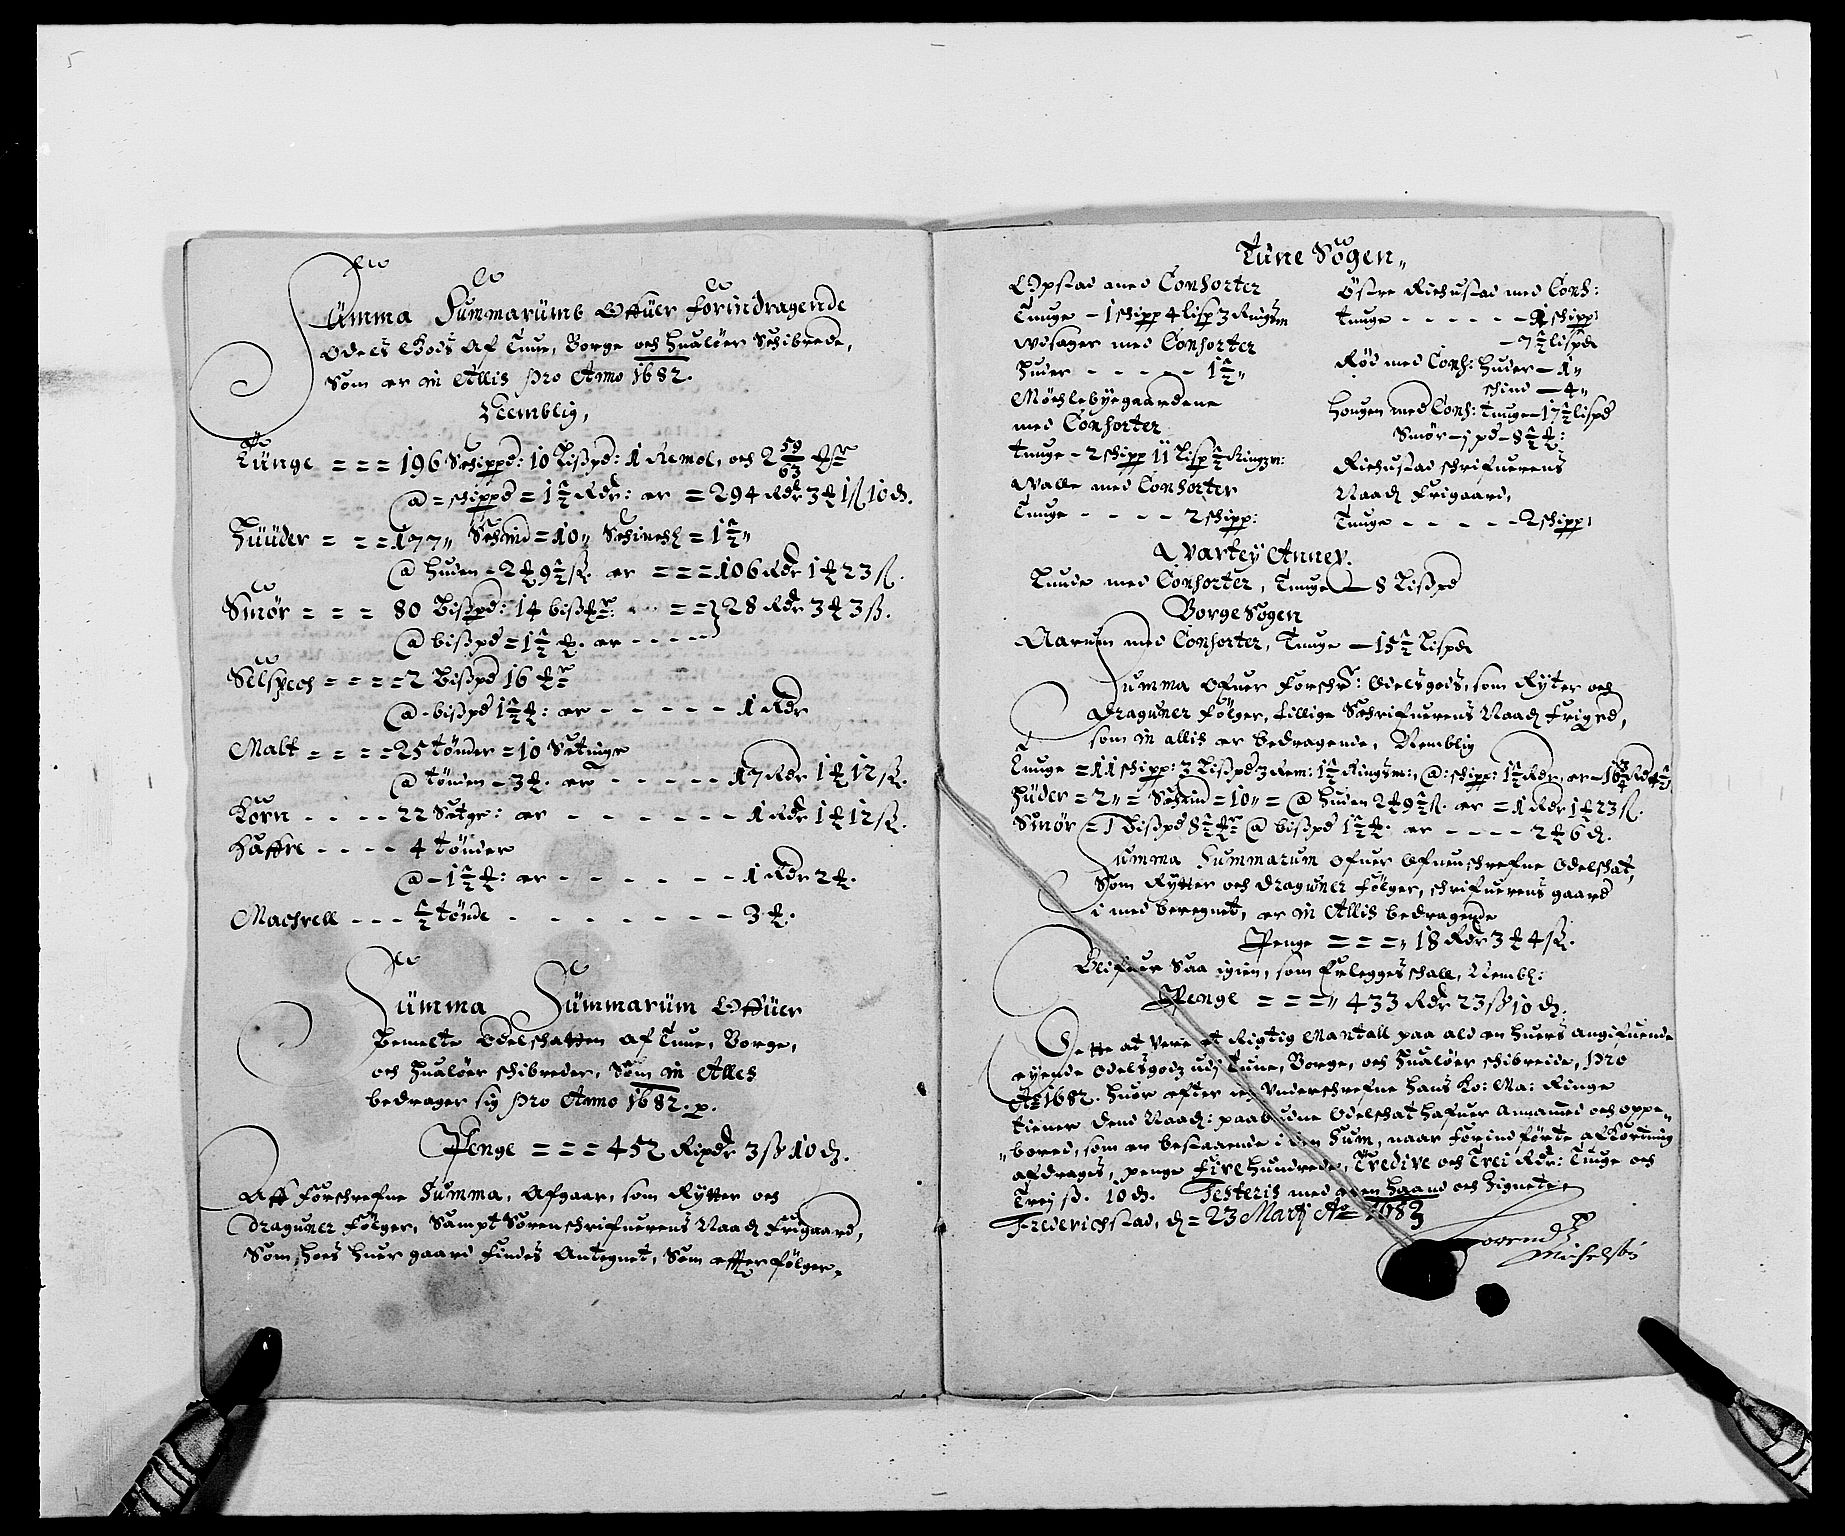 Summa Summarumb Offuer forindragende
Odels Gods Af Tune, Borge och Hualøer Schibrede,
Som er in Allis pro Anno 1682.
Neemblig,
Tunge = = = 196 Schippd: 10 Lißpd: 1 Remol, och 2 59/63
@ = schippd = 1½ Rdr: er = 294 Rdr 3 1ß 10 d.
Huuder = = = 177 „ Schind = 10 „ Schinchl = 1½ „
@ Huden = 2 9½ ß. er = = = 106 Rdr 1 23 ß.
Smør = = = 80 Bißpd: 14 = = 28 Rdr 3 3 ß.
@ bißpd = 1½ . er - - - -
Selspech = = = = 2 Bißpd 16
@ - bißpd 1½ : er - - - - - 1 Rdr
Malt = = = = 25 tønder = 10 Settinge
@ tønden - 3 . er - - - - - 17 Rdr 1 12 ß.
Korn - - - - 22 Settgr: er - - - - - 1 Rdr 1 12 ß.
Haffre - - - - 4 tønder
@ - 1½ : er - - - - - - 1 Rdr 2 .
Machrell - - - ½ tønde - - - - - - - 3 .
Summa Summarum Offuer
Bemelte Odelschatten af Tune, Borge,
och Hualøer schibreder, Som in Alles
bedrager sig pro Anno 1682. p.
Penge = = = 452 Rixdr 3 ß 10 d.
Aff forschrefne Summa, Afgaar, som Rytter och
Draguner følger, Sampt Sorenschrifuerens Naad Friigaard,
Som hoes huer gaard findes Antegnet, Som effterfølger.
Tune Sogen„
Opstad med Consorter
Tunge - 1 schipp 4 lisp 3 Ringsm
Wdsager med Consorter
Huder - - - - - 1½ „
Møchlebyegaardene
med Consorter
Tunge - 2 schipp 11 Lisp ½ Ringsm:
Walle med Consorter
Tunge - - - - 2 schipp:
Østre Richustad med Cons:
Tunge - - - - - - 1 schipp:
- 7½ lispd
Rød med Cons: Huder - 1 „
schind - 4 „
Hougen med Cons: Tunge - 17½ lispd
Smør - 1 pd - 8½ :
Richustad schrifuerens
Naad Friigaard,
Tunge - - - - - 2 schipp:
Wartey Annex.
Tunde med Consorter, Tunge - 8 Lißpd
Borge Sogen
Aarum med Consorter, Tunge - 15½ Lispd
Summa Ofuer Forschr: Odelsgods, som Ryter och
Draguner følger, tillige Schrifuerens Naad Friigrd,
som in allis er bedragende, Nemblig
Tunge = 11 schipp: 3 Lißpd 3 Rem: 1½ Ringsm:, @: schipp: 1½ Rdr, er - 16¾ Rd
Huder = 2 „ = Schind = 10 „ = @ Huden 2 9½ ß. er = 1 Rdr 1 23 ß.
Smør = 1 Bißpd 8½ @ bißpd 1½ . er - - - - 2 6 d.
Summa Summarum Ofuer Ofuenschrefne Odelschat,
Som Rytter och Draguner følger, schrifuerens gaard
i med beregnet, er in Allis bedragende
Penge = = = „ 18 Rdr 3 4 ß.
Blifuer Saa igien, som Erlegges schall, Nembl:
Penge = = = „ 433 Rdr 23 ß 10 d.
Dette at Vere et Rigtig Mantall paa ald en huers angifuende
eyende Odelsgodz udj Tune, Borge, och Hualøer schibreide, pro
Ao 1682. Huor effter ieg Underschrefne Hans Ko: Ma: Ringe
tiener dend Naad: paabudne Odelschat hafuer Annammed och oppe-
boered, som er bestaaende i den Sum, naar forind førte afKortning
afdrages, penge Fire Hundrede, Tredive och Trei Rdr: Tiuge och
Trej ß. 10 d. Testeris med egen Haand och Zignete,
Frederichstad, d = 23 Martj Ao 1683
Michelsøn